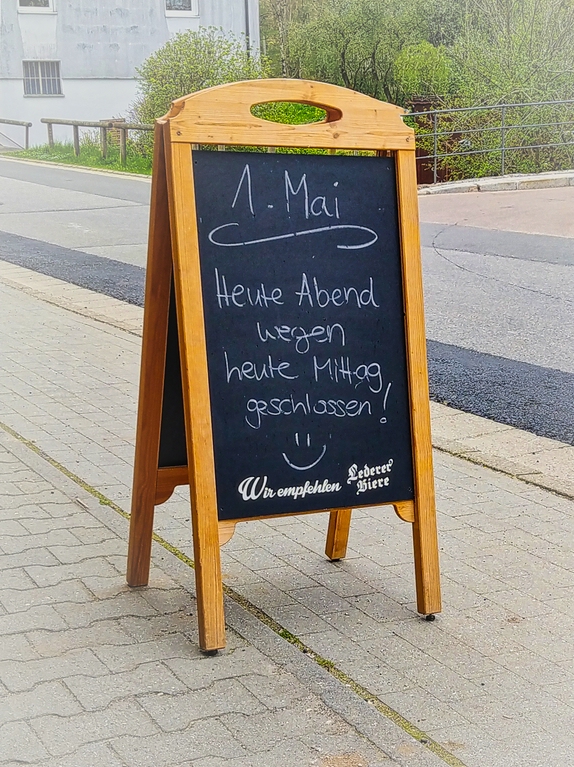 1. Mai
Heute Abend
wegen
heute Mittag
geschlossen!
Wir empfehlen Lederer
Biere